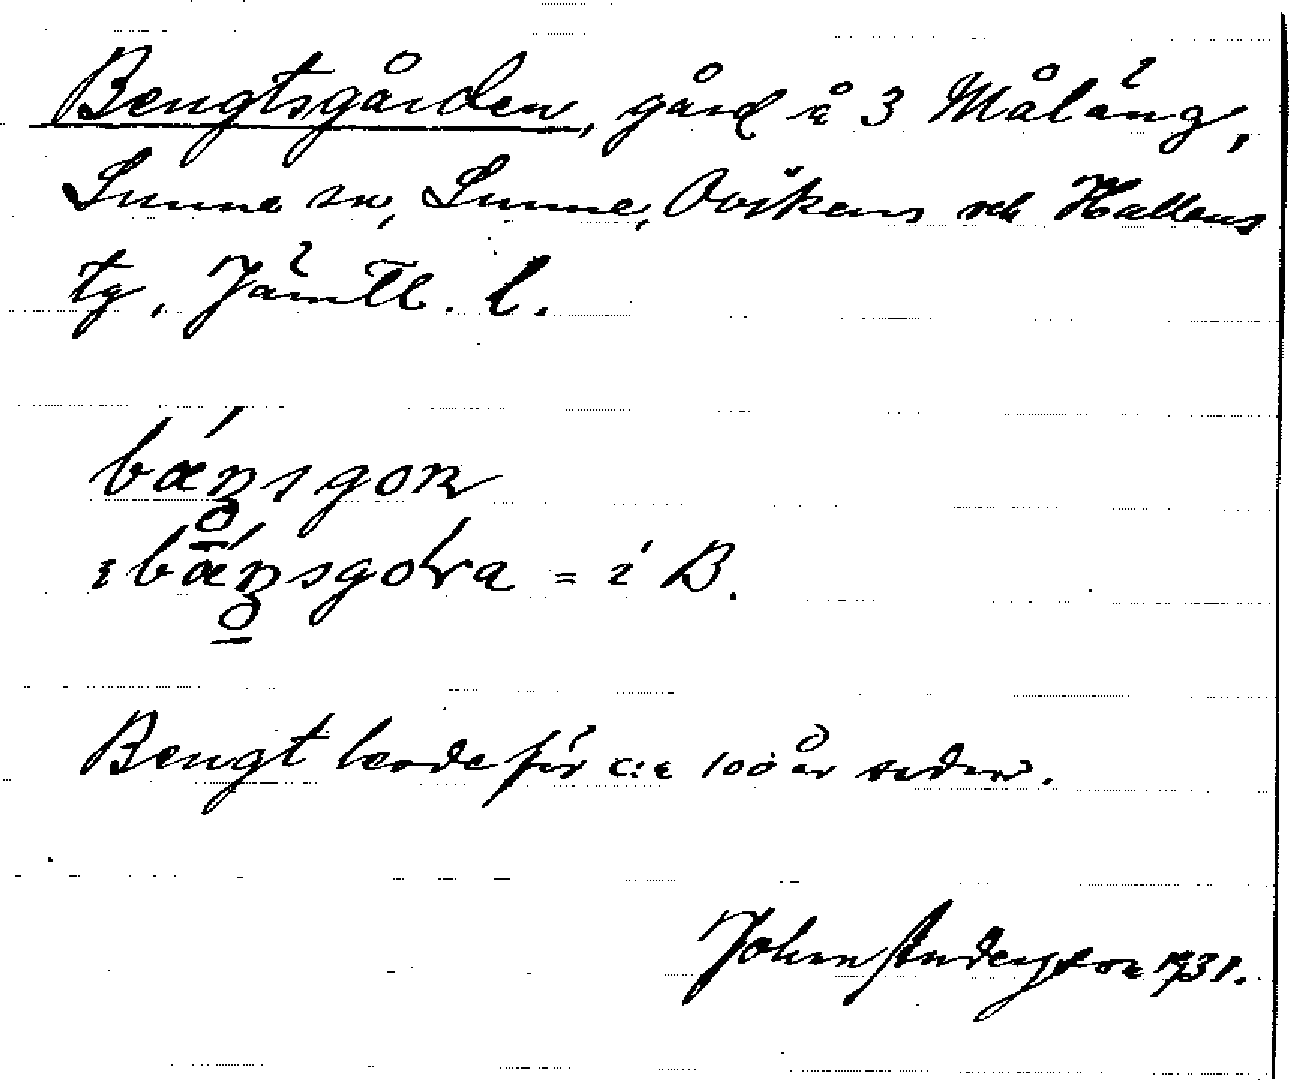 Bengtsgården, gård å 3 Målång,
Sunne sn, Sunne, Ovikens och Hallens
tg, Jämtl. l.
= i B.
Bengt levde för c:a 100 år sedan.
Johan Anderson 1931.